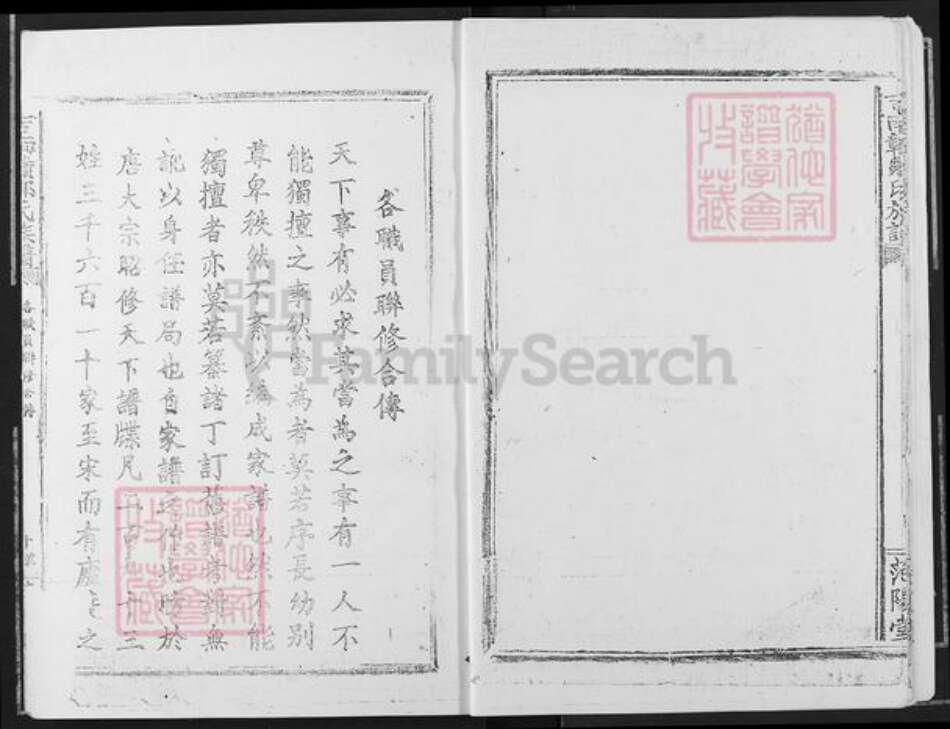 范陽堂
猶他家
譜學會
收藏
各職員聯修合傳
天下事有必求其當為之事有一人不
能獨擅之事然當為者莫若序長幼別
尊卑秩然不紊以編成家譜也然不能
獨擅者亦莫若纂諸丁訂舊譜者無
訛以身任譜局也自家譜之作也於
唐太宗昭修天下譜牒凡十三
姓三千六百一十家至宋而有之
猶他家
譜學會
收藏
FamilySearch